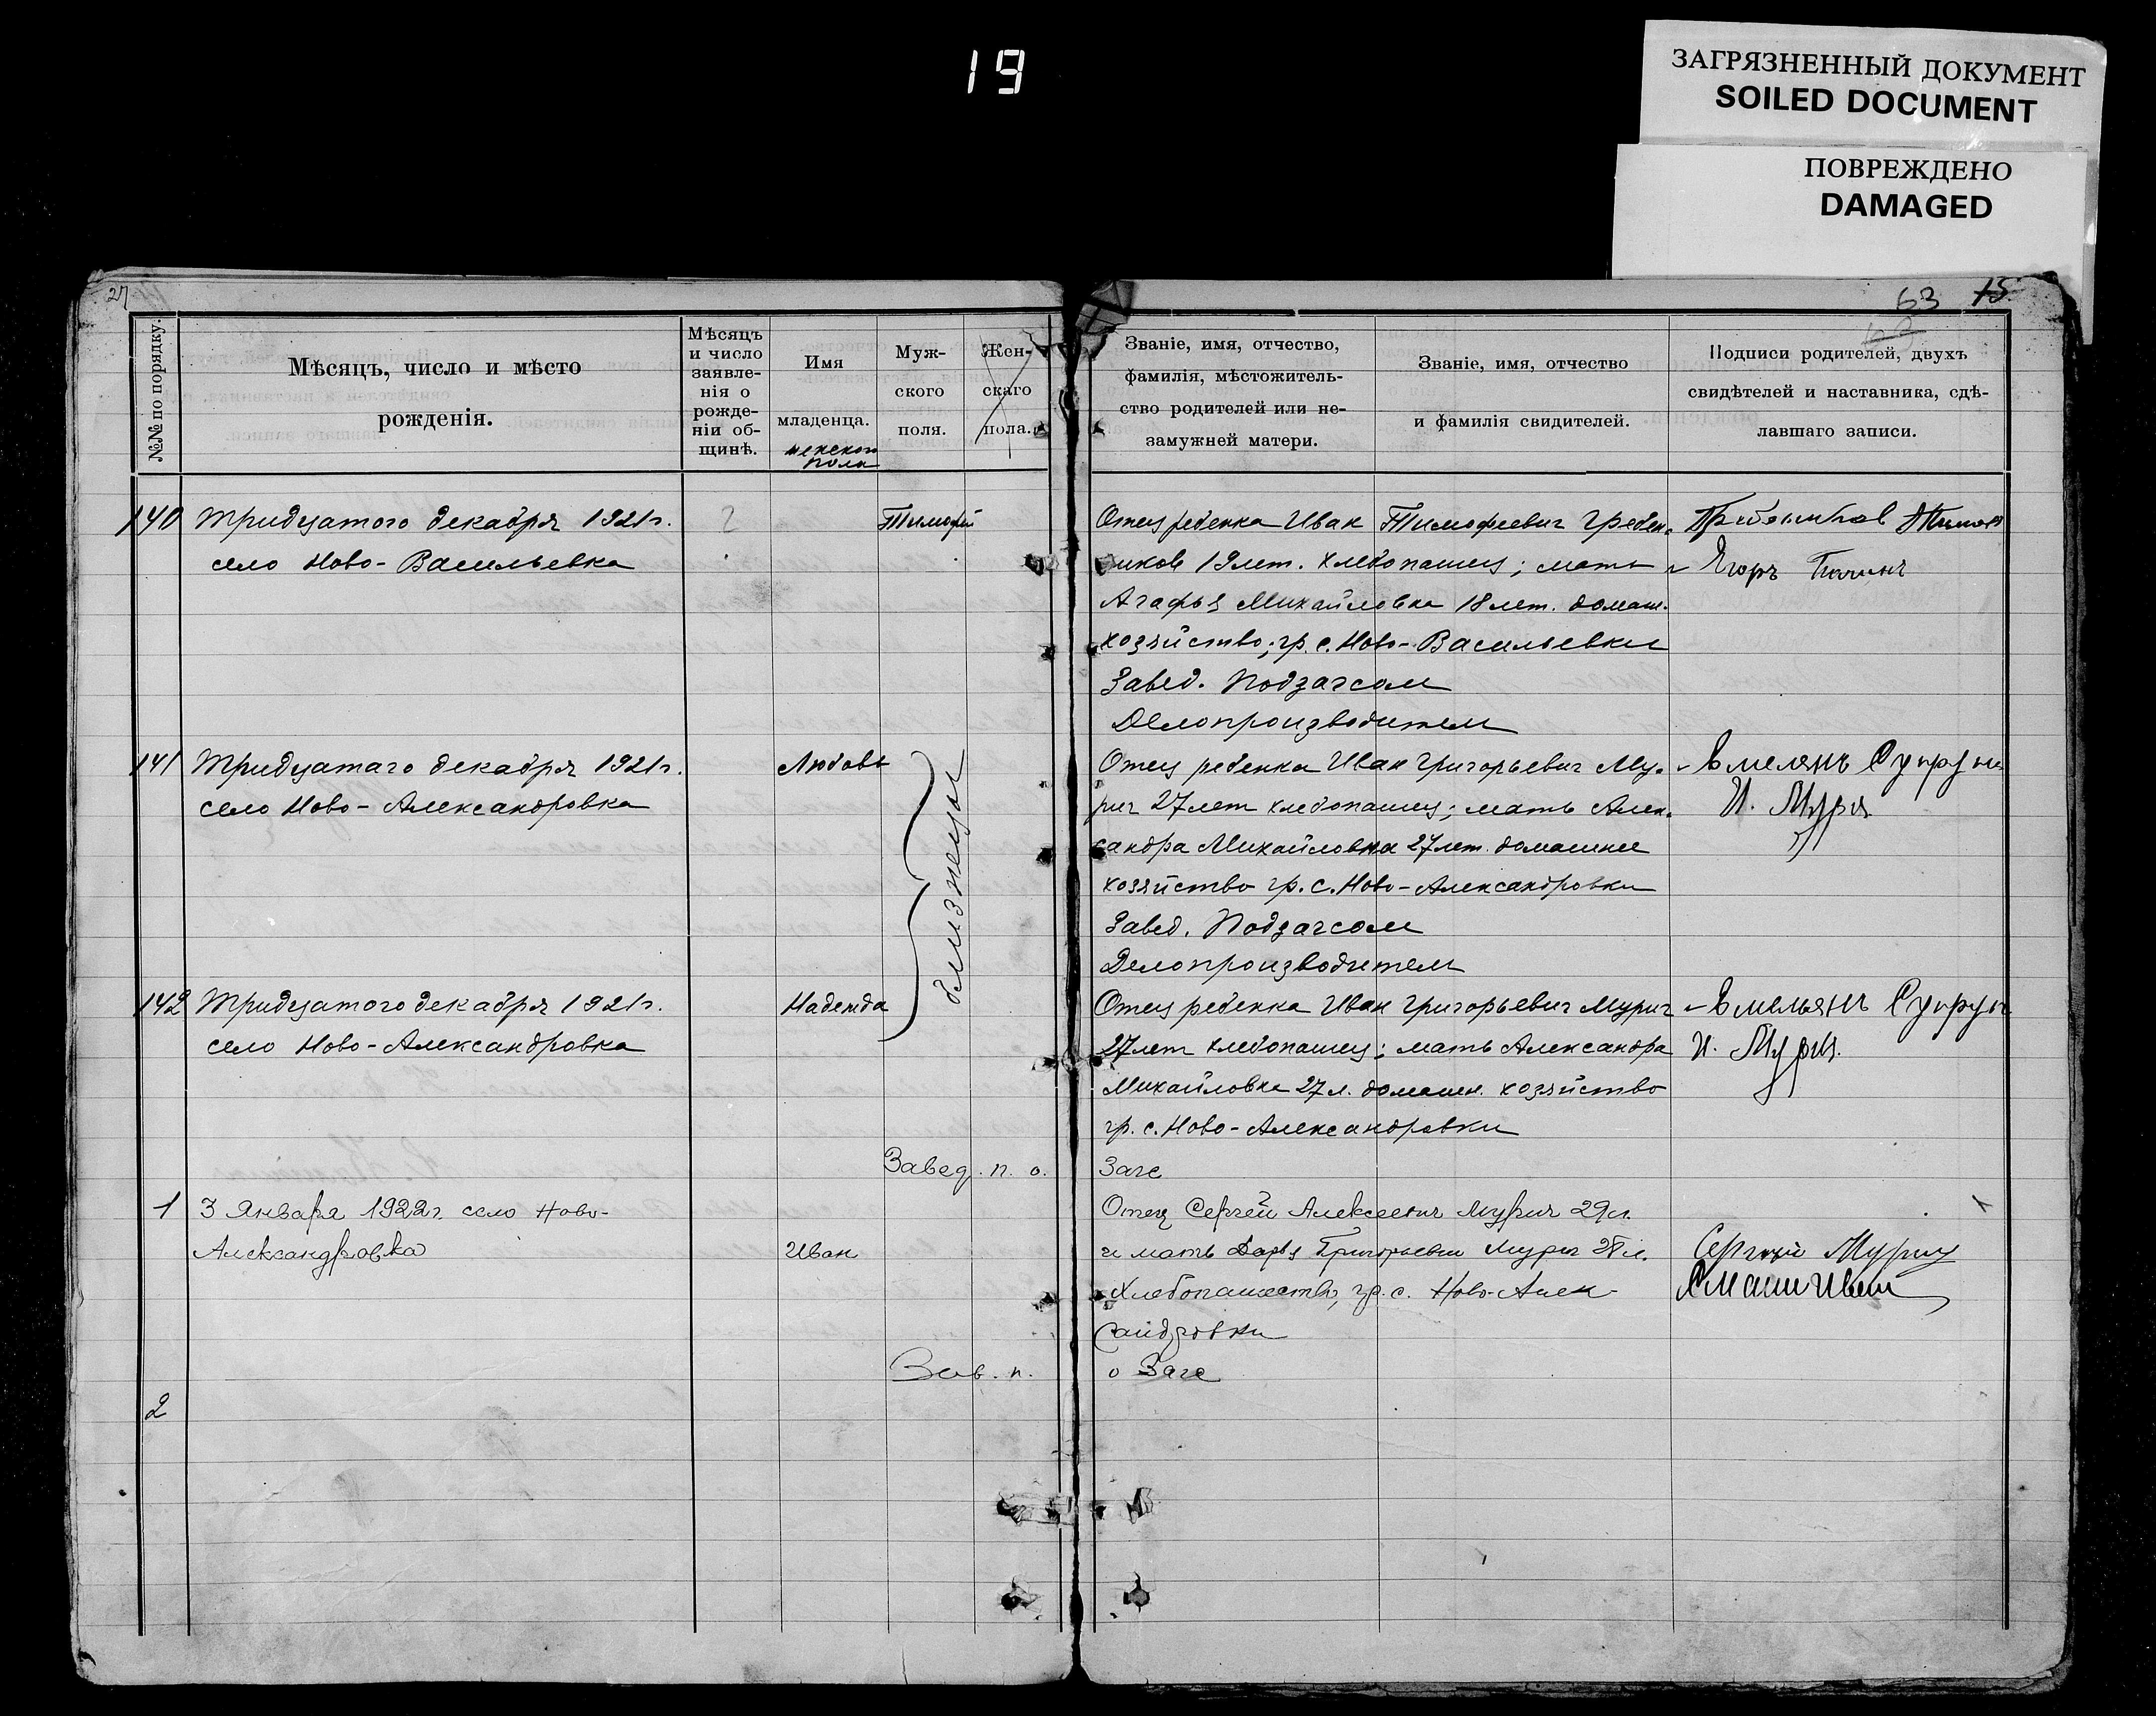 19
ЗАГРЯЗНЕННЫЙ ДОКУМЕНТ
SOILED DOCUMENT
ПОВРЕЖДЕНО
DAMAGED
27
63 15
№№ по порядку.
Мѣсяцъ, число и мѣсто
рожденія.
Мѣсяцъ
и число
заявле-
нія о
рожде-
ніи об-
щинѣ.
Имя
младенца.
женского
пола
Муж-
ского
поля.
Жен-
скаго
пола.
Званіе, имя, отчество,
фамилія, мѣстожитель-
ство родителей или не-
замужней матери.
Званіе, имя, отчество
и фамилія свидѣтелей.
Подписи родителей, двухъ
свидѣтелей и наставника, сдѣ-
лавшаго записи.
140 Тридцатого декабря 1921г.
село Ново-Васильевка
Тимофей
Отец ребенка Иван Тимофеевич Гребен-
ников 19 лет. хлебопашец; мать
Агафья Михайловна 18 лет. домаш.
хозяйство; гр. с. Ново-Васильевки
Завед. Подзагсом
Делопроизводитель
Егоръ
141 Тридцатаго декабря 1921г.
село Ново-Александровка
Любовь
близнецы
Отец ребенка Иван Григорьевич Му-
рич 27 лет хлебопашец; мать Алек-
сандра Михайловна 27 лет. домашнее
хозяйство гр. с. Ново-Александровки
Завед. Подзагсом
Делопроизводитель
Емелянъ Супрун
И. Мурич
142 Тридцатого декабря 1921г.
село Ново-Александровка
Надежда
Отец ребенка Иван Григорьевич Мурич
27 лет хлебопашец; мать Александра
Михайловна 27 л. домашн. хозяйство
гр. с. Ново-Александровки
Емельянъ Супрун
И. Мурич
Завед. п. о. Загс
1 3 Января 1922г. село Ново-
Александровка
Иван
Отец Сергей Алексеевич Мурич 29 л.
и мать Дарья Григорьевна Мурич 28 л.
Хлебопашество, гр. с. Ново-Алек-
сандровки
Сергей Мурич
Зав. п. о Загс
2